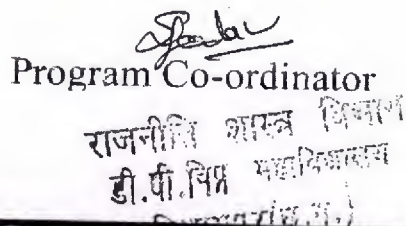 Program Co-ordinator
राजनीति शास्त्र विभाग
डी.पी.विप्र महाविद्यालय